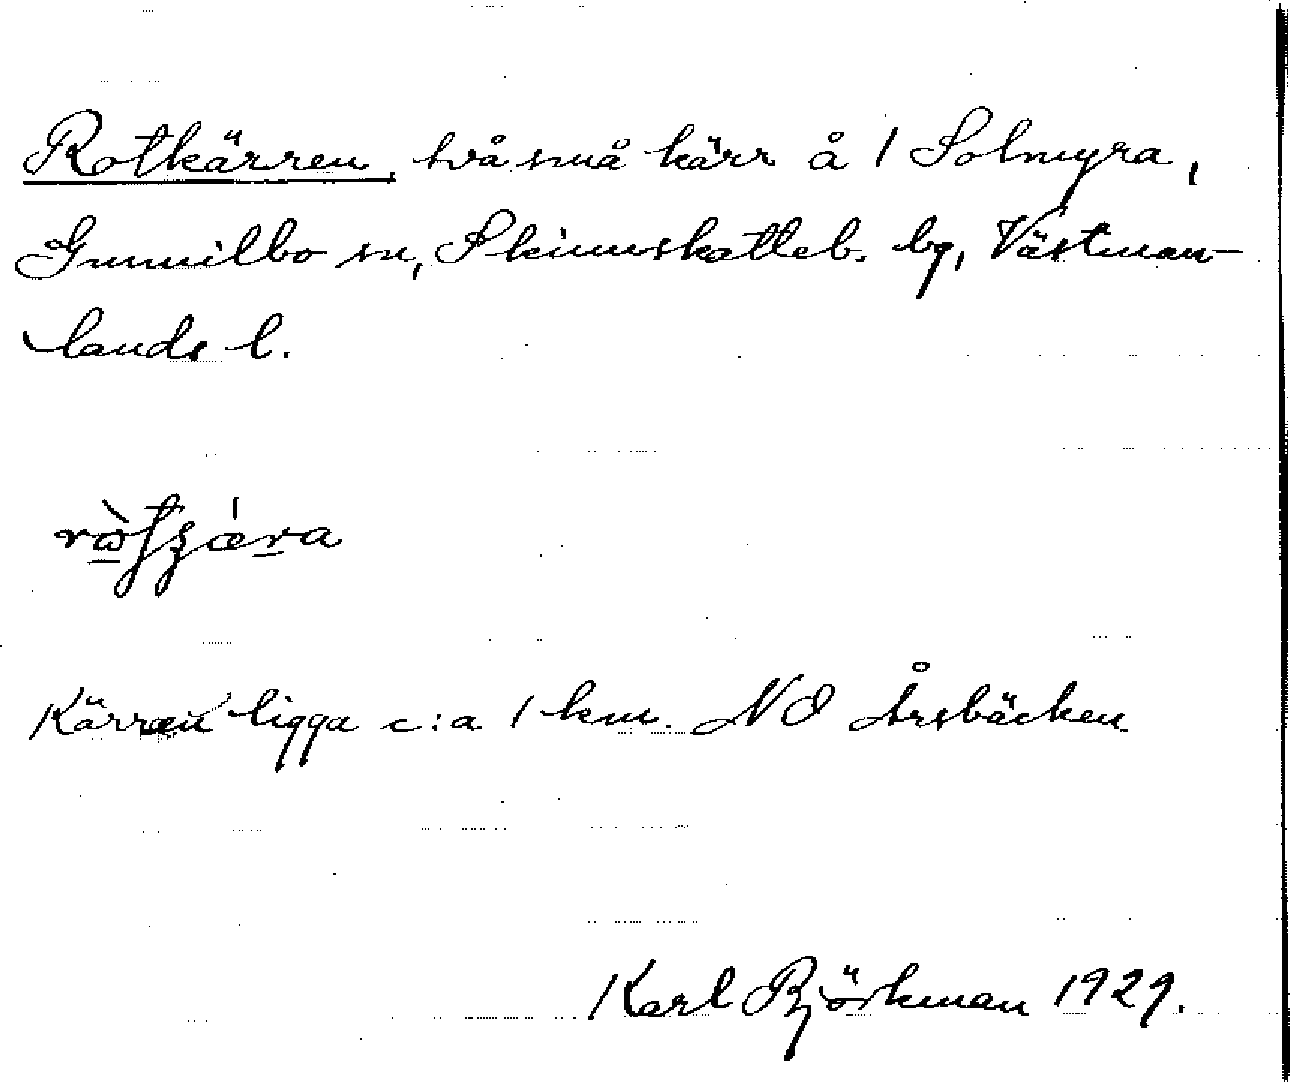 Rotkärren, två små kärr å 1 Solmyra,
Gunnilbo sn, Skinnskatteb. bg, Västman-
lands l.
Kärren ligga c:a 1 km. NO Årsbäcken
Karl Björkman 1929.